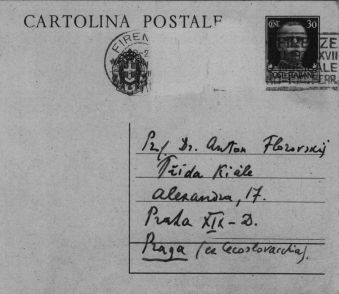 CARTOLINA POSTALE
CENT 30
FIREN
FIRENZE
XVII
ALE
FERR
POSTE ITALIANE
Prof. Dr. Anton Florovskij
Třida Krále
Alexandra, 17.
Praha XIX-D.
Praga (ex Cecoslovacchia).